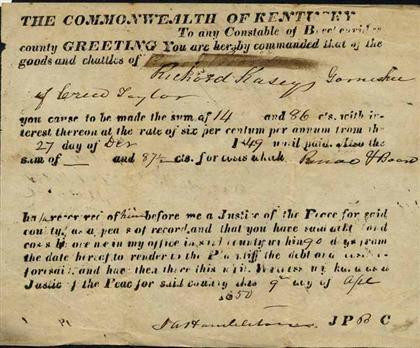 THE COMMONWEALTH OF KENTUCKY
To any Constable of Breckenridge
county GREETING You are hereby commanded that of the
goods and chattles of
Richard Kasey Garnishee
of Creed Taylor
you cause to be made the sum of 14 and 86 c's. with in-
terest thereon at the rate of six per centum per annum from the
27 day of Dec 1849 until paid. Also the
sum of — and 87½ cts. for costs which
before me a Justice of the Peace for said
county, as appears of record, and that you have said debt and
costs before me in my office in said county within 90 days from
the date hereof to render to the Plaintiff the debt and costs
aforesaid, and have then there this writ. Witness my hand as a
Justice of the Peace for said county this 9th day of Apl
1850
J P B C